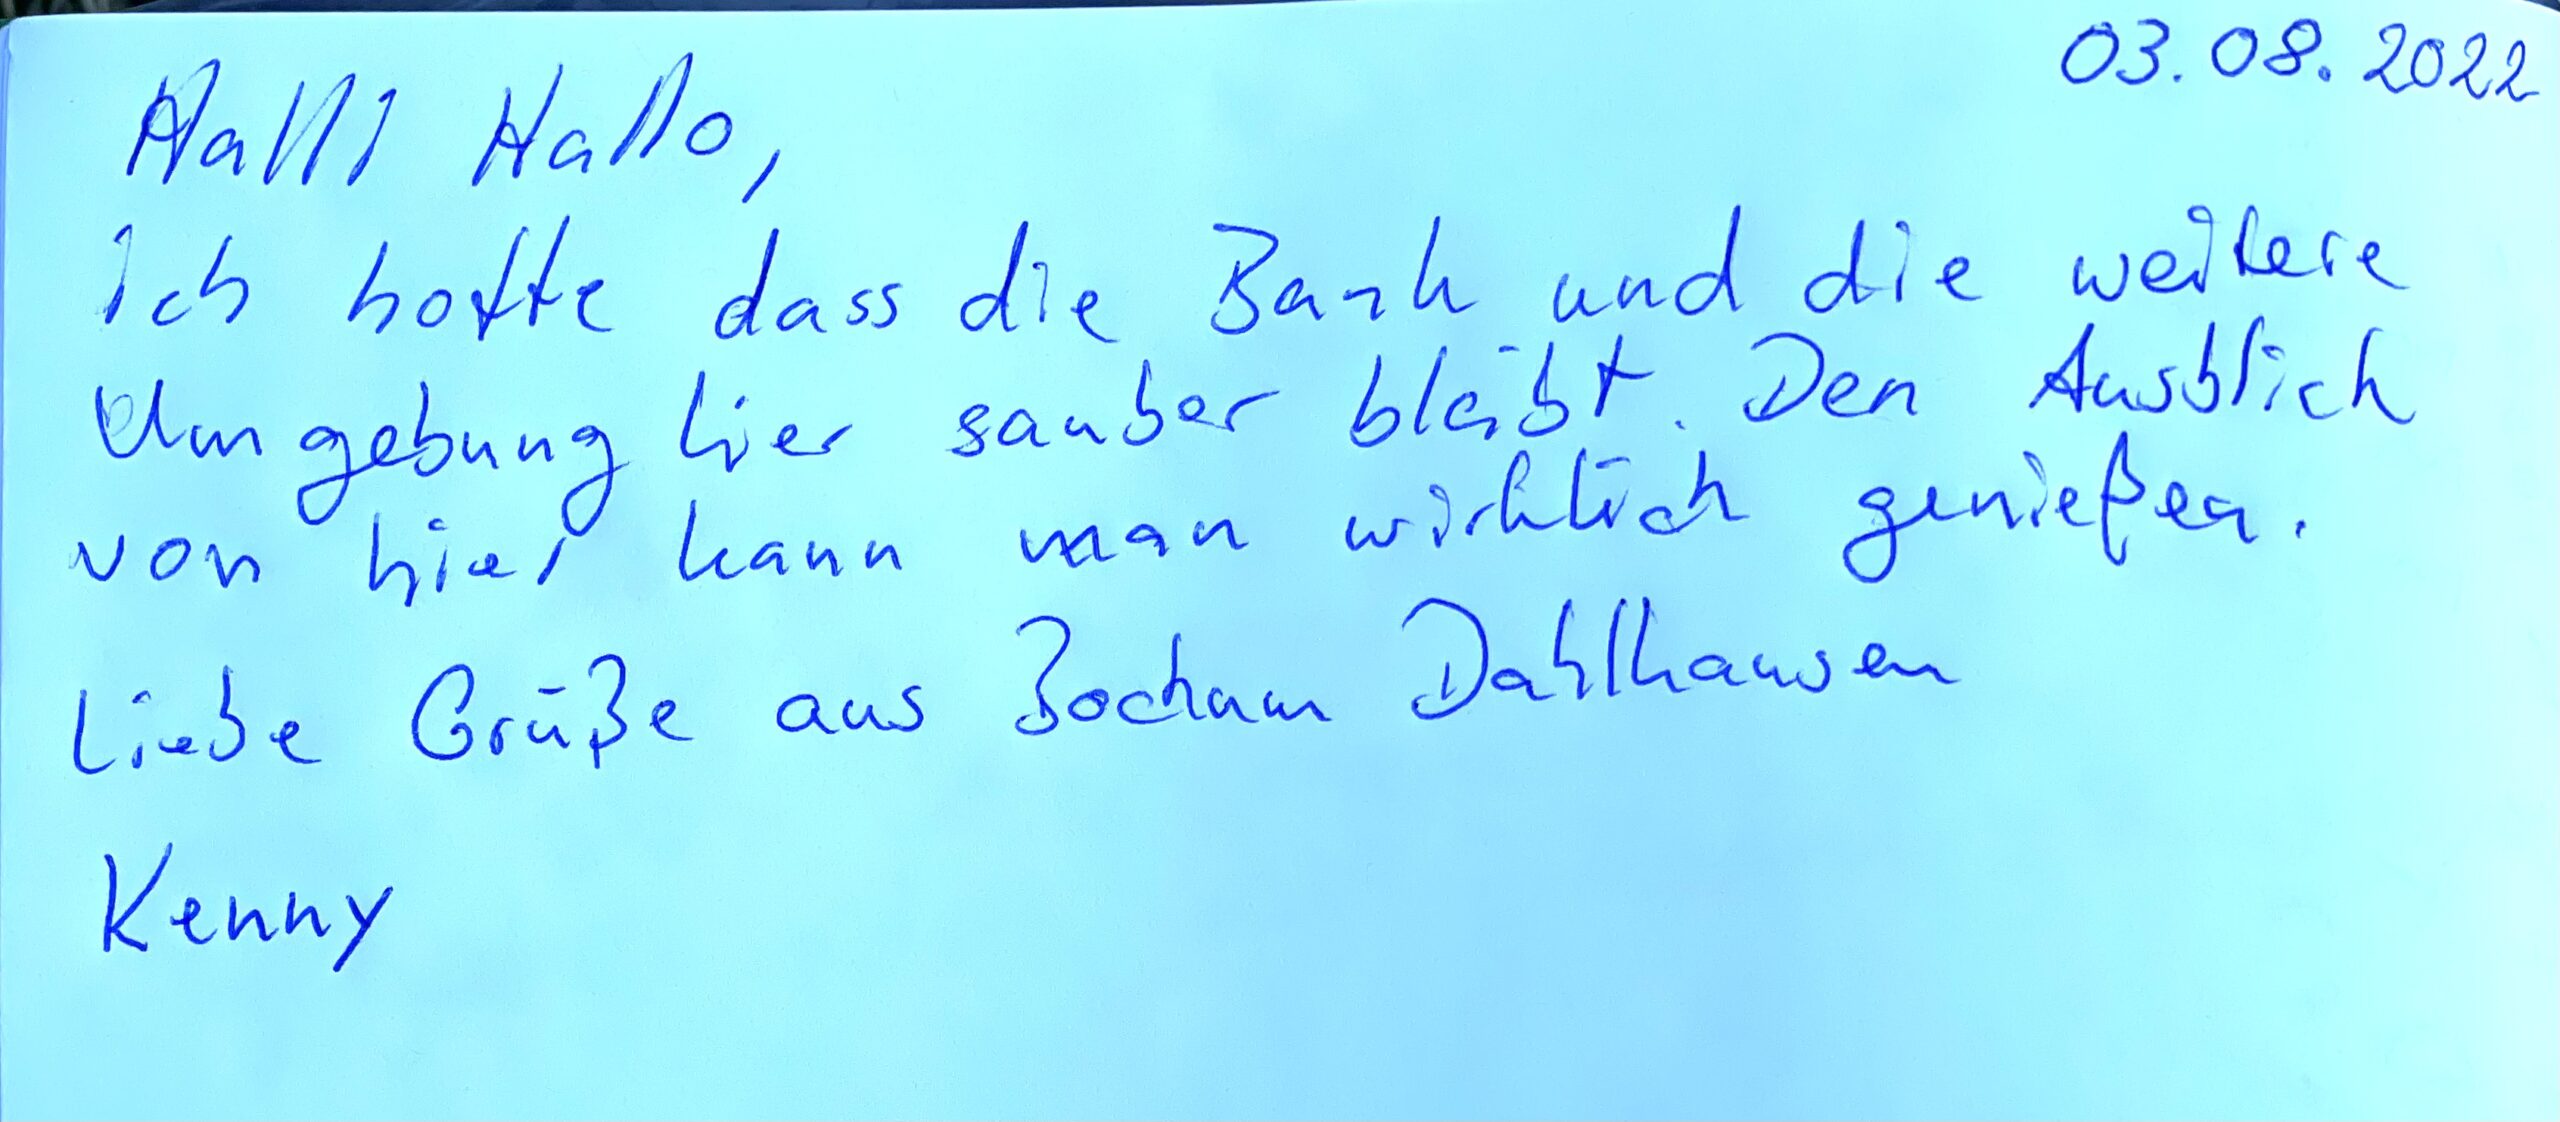 03.08.2022
Halli Hallo,
ich hoffe dass die Bank und die weitere
Umgebung hier sauber bleibt. Den Ausblick
von hier kann man wirklich genießen.
Liebe Grüße aus Bochum Dahlhausen
Kenny